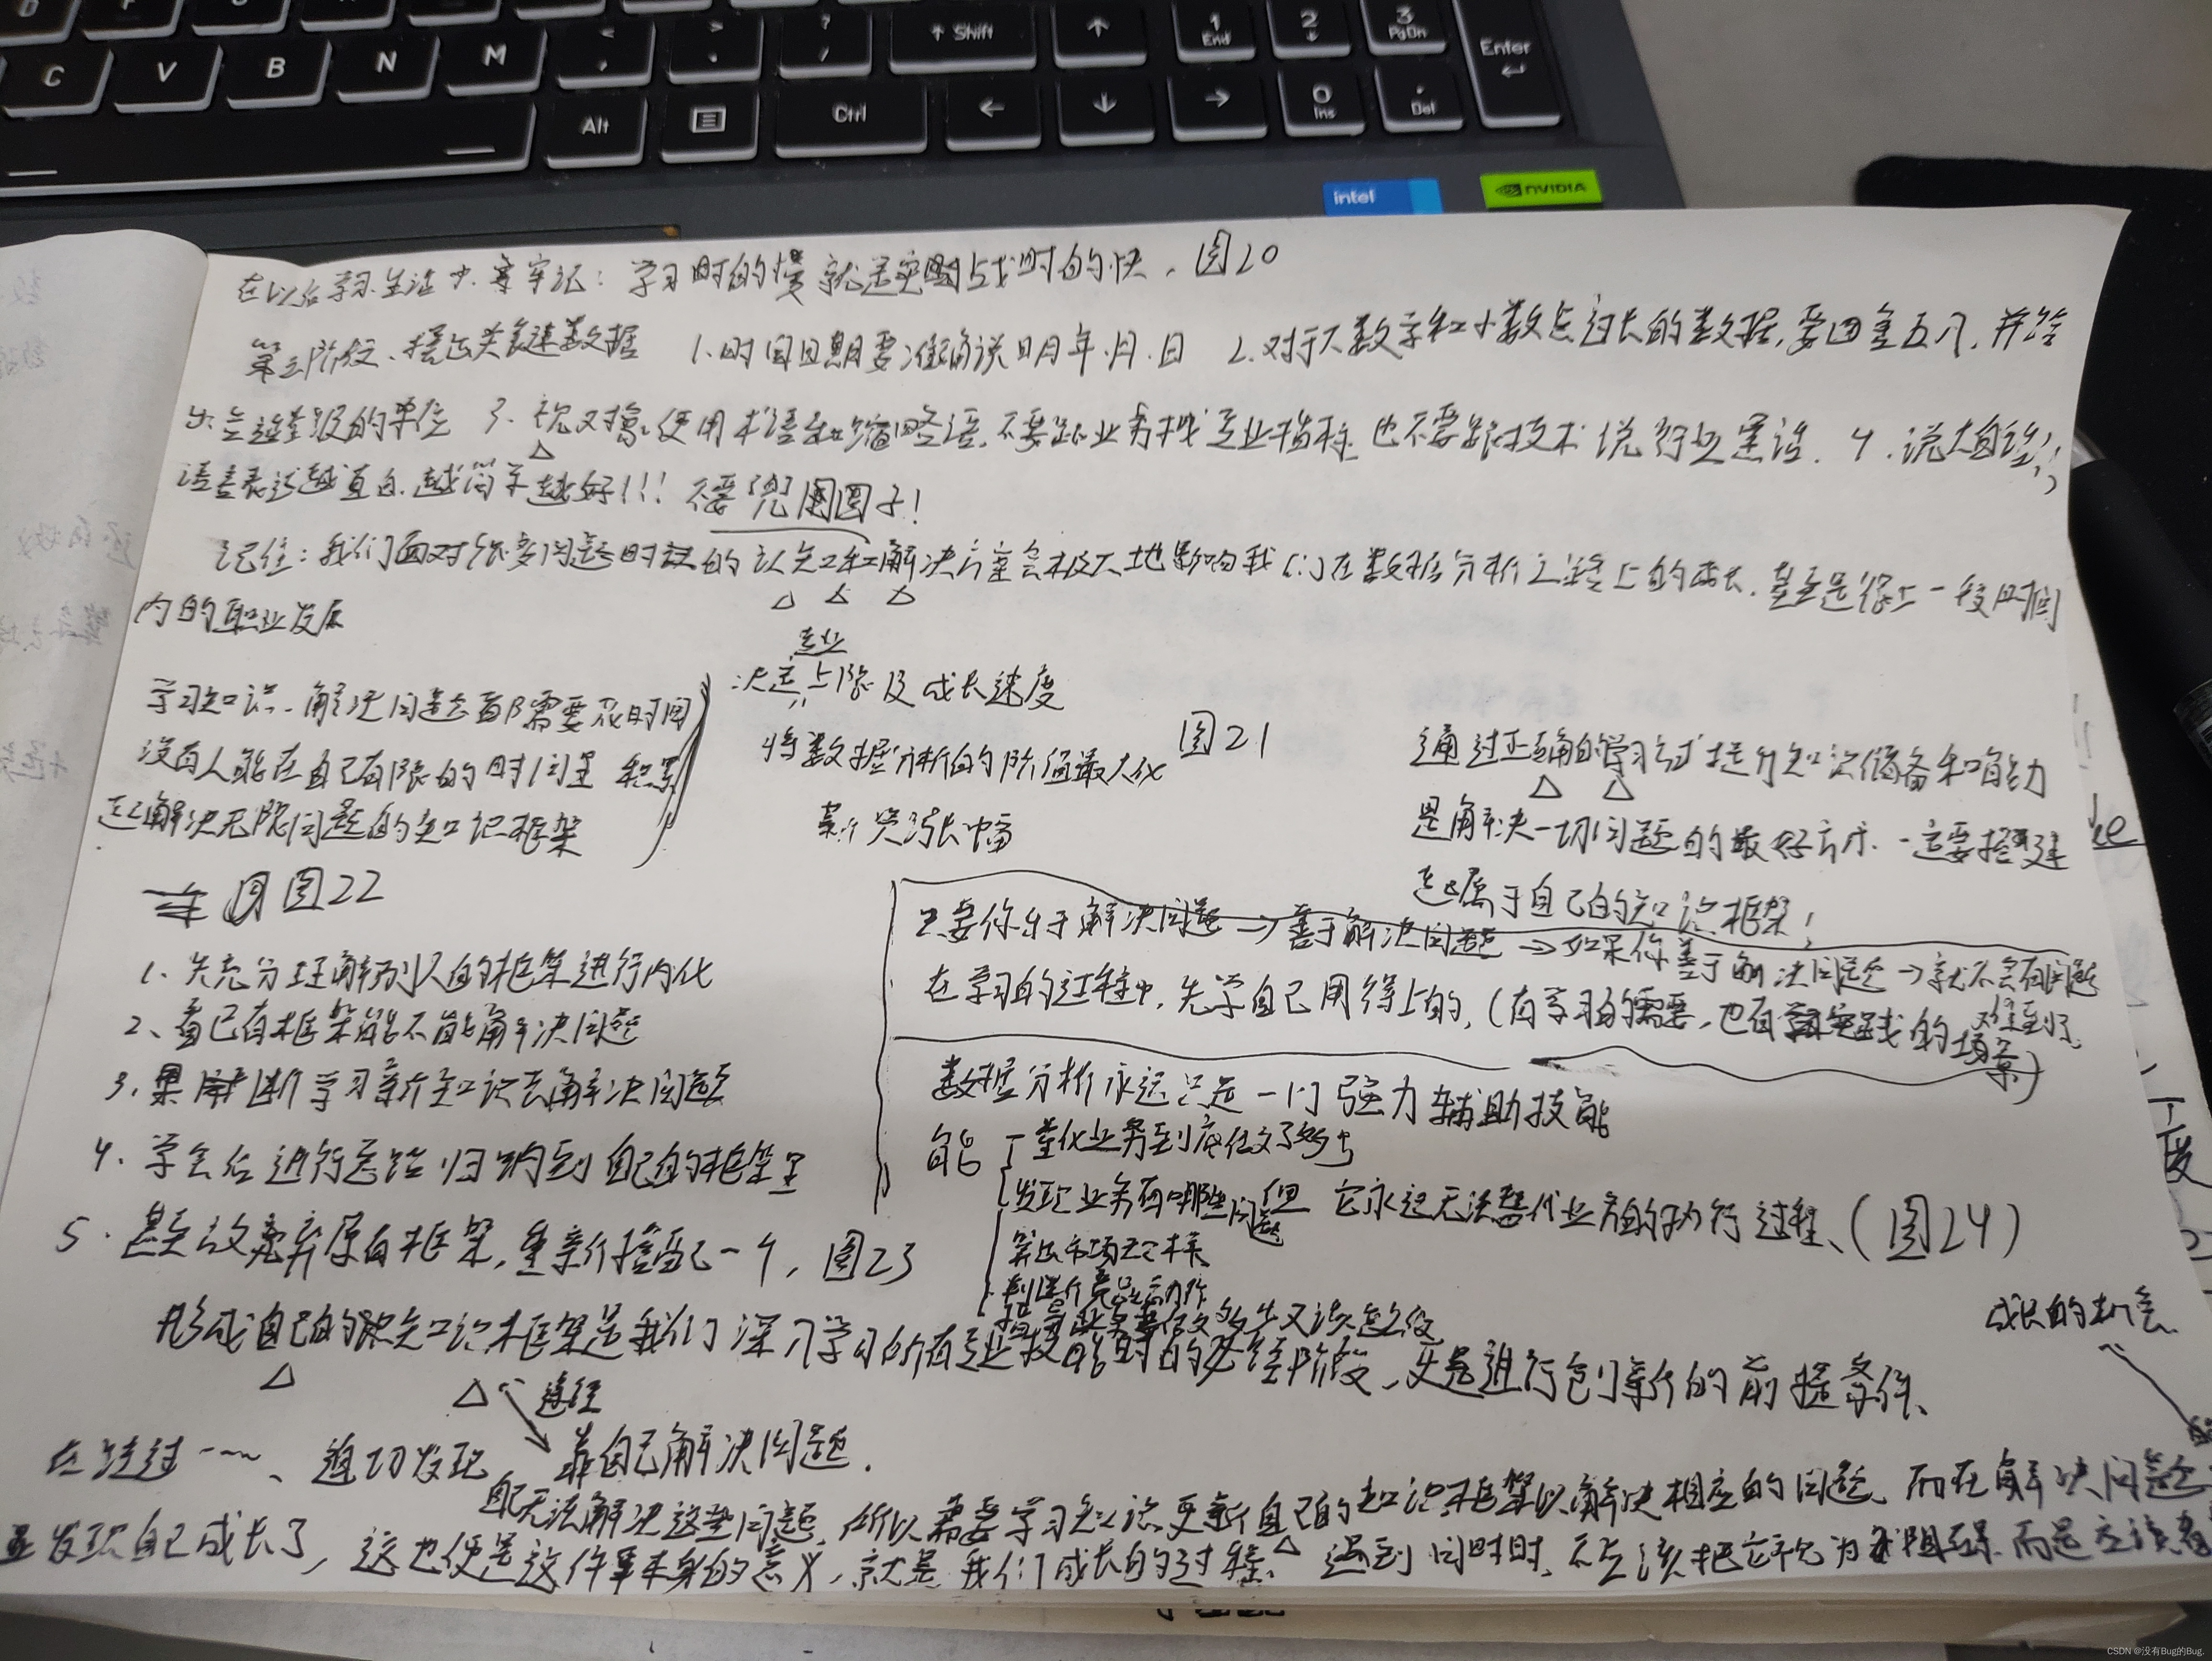 C V B N M < , > . ? / ↑ Shift ↑ 1 End 2 ↓ 3 PgDn Enter
Alt Ctrl ← ↓ → 0 Ins . Del
intel NVIDIA
在以后学习生活中,要牢记:学习时的慢就是实战时的快。图20
第三阶段、摆出关键数据 1.时间日期要准确说明年.月.日 2.对于大数字和小数点过长的数据,要四舍五入,并给
出合适量级的单位 3. 使用术语和缩略语,不要跟业务拽专业指标,也不要跟技术说行业黑话. 4.说大白话;
语言表达越直白,越简单越好!!! 不要兜圈子!
记住:我们面对很多问题时的认知和解决方案会极大地影响我们在数据分析之路上的成长,甚至是很长一段时间
内的职业发展
专业
决定上限及成长速度
学习知识、解决问题都需要花时间
没有人能在自己有限的时间里 积累
起解决无限问题的知识框架
将数据分析的价值最大化
薪资涨幅
图21
通过正确的学习方式提升知识储备和能力
是解决一切问题的最好方式.一定要搭建
起属于自己的知识框架!
图22
1.先充分理解别人的框架进行内化
2、看已有框架能不能解决问题
3. 学习新知识去解决问题
4.学会后进行总结归纳到自己的框架里
5.甚至放弃原有框架,重新搭建一个,图23
只要你乐于解决问题→善于解决问题→如果你善于解决问题→就不会有问题
难到你
在学习的过程中,先学自己用得上的,(有学习的需要,也有实践的场景)
数据分析永远只是一门强力辅助技能
能 量化业务到底做了多少
发现业务有哪些问题 但它永远无法替代业务的执行过程、(图24)
指导业务要做多少又该怎么做
形成自己的知识框架是我们深入学习所有专业技能时的必经阶段,更是进行创新的前提条件、
途径
靠自己解决问题.
成长的机会
在经过……、迫切发现
自己无法解决这些问题,所以需要学习知识更新自己的知识框架以解决相应的问题、而在解决问题
发现自己成长了,这也便是这件事本身的意义,就是我们成长的过程、遇到问时时,不应该把它视为阻碍,而是应该
CSDN @没有Bug的Bug.